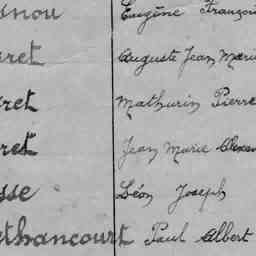 inou Eugène François
ret Auguste Jean Marie
ret Mathurin Pierre
ret Jean Marie Alexan
sse Léon Joseph
ethancourt Paul Albert